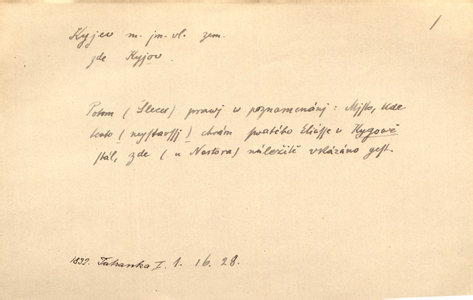 1
Kyjev m. jm. vl. zem.
zde Kyjov.
Potom (Šlecer) prawj w poznamenánj: Mjsto, kde
tento (neystaršj) chrám swatého Eliášse v Kygowě
stál, zde (u Nestora) náležitě vkázáno gest.
1832. Jahanka I. 1. 16. 28.